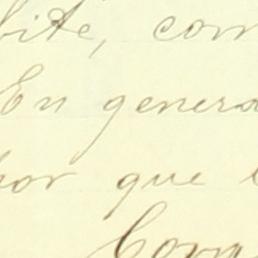 bite, com
En genera
por que
Cora